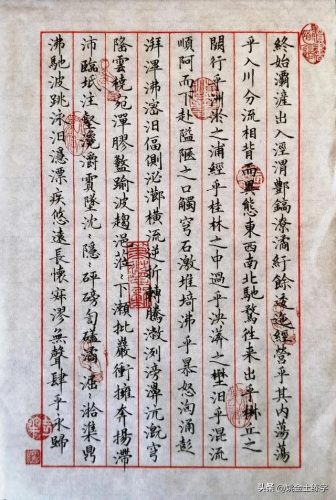 終始灞滻出入涇渭酆鎬潦潏紆餘逶迤經營乎其內蕩蕩
乎八川分流相背而異態東西南北馳騖往來出乎椒丘之
闕行乎洲淤之浦經乎桂林之中過乎泱漭之壄汨乎混流
順阿而下赴隘陿之口觸穹石激堆埼沸乎暴怒洶涌彭
湃滭沸宓汨偪側泌瀄橫流逆折轉騰潎洌滂濞沆溉穹
隆雲橈宛潬膠盭踰波趨浥莅〻下瀨批巖衝擁奔揚滯
沛臨坻注壑瀺灂霣墜沈〻隱〻砰磅訇磕潏〻淈〻湁潗鼎
沸馳波跳沫汨濦漂疾悠遠長懷寂漻無聲肆乎永歸
头条 @姚金土练字